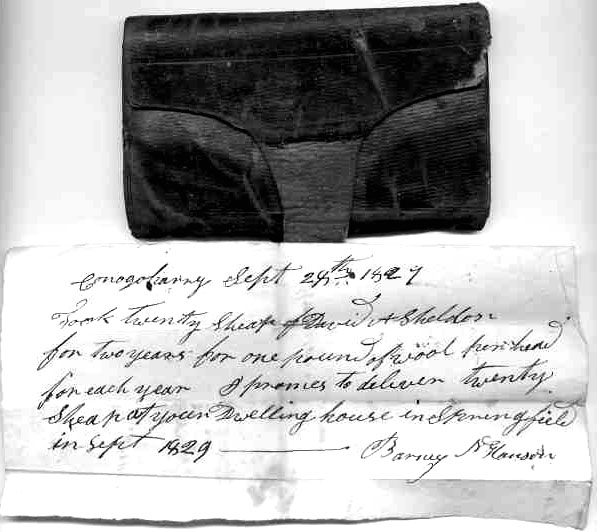 Conogoharry Sept 24th 1827
Took twenty Sheap of David A Sheldon
for two years for one pound of wool per head
for each year I promes to deliver twenty
Sheap at your Dwelling house in Springfield
in Sept 1829 Barney N Hanson